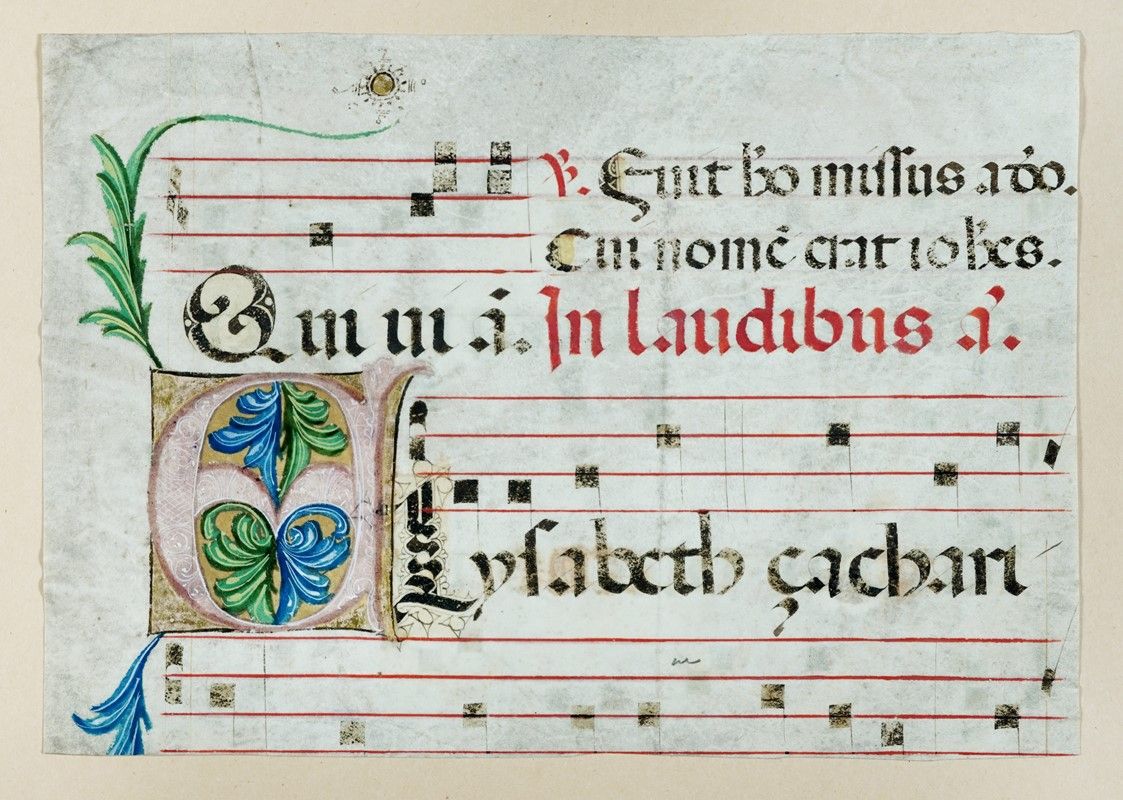 ℣. Fuit ho missus a deo.
Cui nomē erat iohes.
In laudibus a̅.
ELysabeth çachari